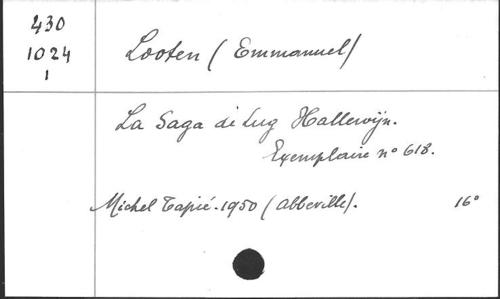 430
1024
1
Looten (Emmanuel)
La Saga de Lug Hallewijn.
Exemplaire n° 618.
Michel Tapié. 1950 (Abbeville). 16°